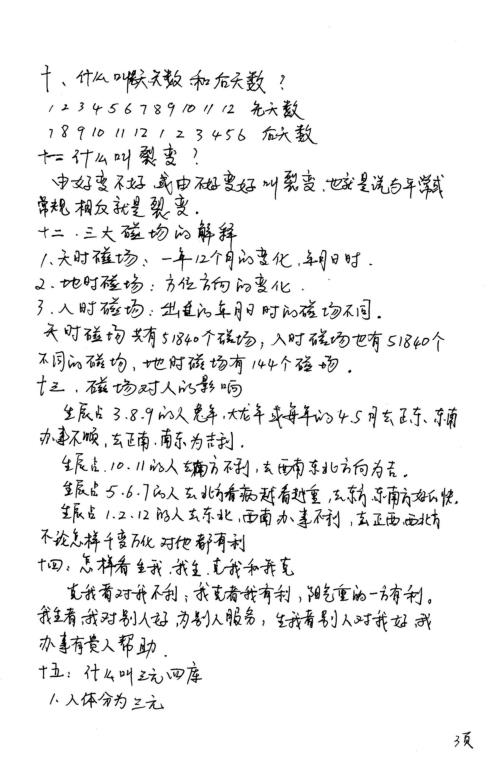 十、什么叫先天数和后天数？
1 2 3 4 5 6 7 8 9 10 11 12 先天数
7 8 9 10 11 12 1 2 3 4 5 6 后天数
十一 什么叫裂变？
由好变不好或由不好变好叫裂变.也就是说与平常或
常规相反就是裂变.
十二.三大磁场的解释
1.天时磁场：一年12个月的变化,年月日时.
2.地时磁场：方位方向的变化.
3.人时磁场：出生的年月日时的磁场不同.
天时磁场共有51840个磁场,人时磁场也有51840个
不同的磁场,地时磁场有144个磁场.
十三.磁场对人的影响
生辰占3.8.9的人兔年,大龙年或每年的4.5月去正东、东南
办事不顺,去正南.南东为吉利.
生辰占.10.11的人去南方不利,去西南东北方向为吉.
生辰占5.6.7的人去北方看病越看越重,去东方东南方好的快.
生辰占1.2.12的人去东北,西南办事不利,去正西.西北方
不论怎样千变万化对他都有利
十四：怎样看生我.我生.克我和我克
克我者对我不利；我克者我有利,阳气重的一方有利。
我生者,我对别人好为别人服务,生我者别人对我好或
办事有贵人帮助.
十五：什么叫三元四库
1.人体分为三元
3页